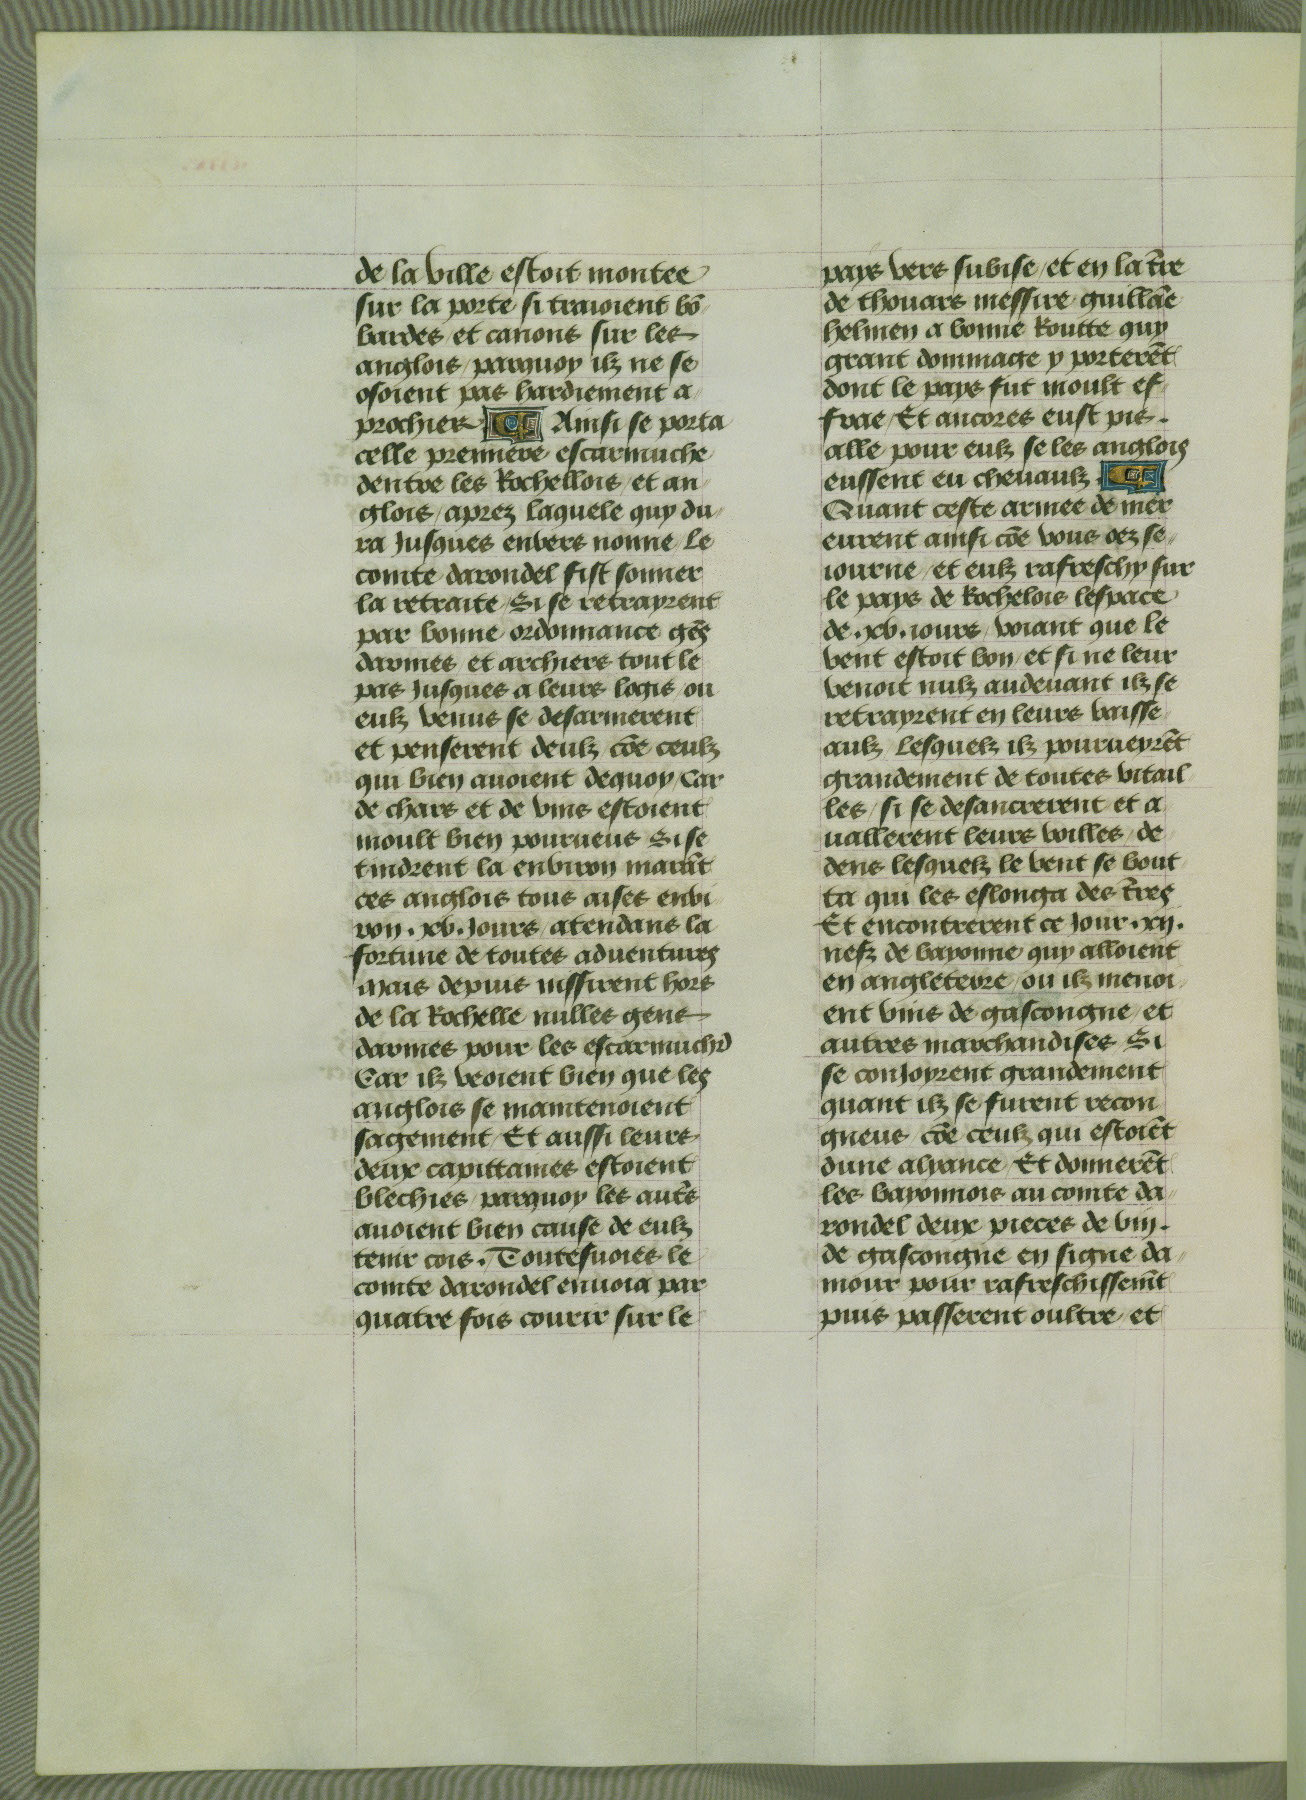 de la ville estoit montee
sur la porte si traioient bō
bardes et canons sur les
anglois / parquoy ilz ne se
osoient pas hardiement a
prochier. Ainsi se porta
celle premiere escarmuche
dentre les Rochellois et an
glois / aprez laquele quy du
ra Jusques envers nonne / le
comte darondel fist sonner
la retraite / Si se retrayrent
par bonne ordonnance gēs
darmes et archiers tout le
pas Jusques a leurs logis ou
eulz venus se desarmerent
et penserent deulz cōe ceulz
qui bien avoient dequoy / Car
de chars et de vins estoient
moult bien pourueus Si se
tindrent la environ marāt
ces anglois tous aises envi
ron .xv. Jours / atendans la
fortune de toutes adventures
Mais depuis nissirent hors
de la Rochelle nulles gens
darmes pour les escarmuchr
Car ilz veoient bien que les
anglois se maintenoient
sagement / Et aussi leurs
deux capittaines estoient
blechies parquoy les autrs
auoient bien cause de eulz
tenir cois. / Toutesuoies le
comte darondel enuoia par
quatre fois courir sur le
pays vers subise / et en la tre
de thouars messire guillāe
helmen a bonne Routte quy
grant dommage y porterēt
dont le pays fut moult ef
frae / Et ancores eust pis.
alle pour eulz se les anglois
eussent eu cheuaulz.
Quant ceste armee de mer
eurent ainsi cōe vous oez se
iourne / et eulz rafreschy sur
le pays de Rochelois lespace
de .xv. iours / voiant que le
vent estoit bon / et si ne leur
venoit nulz audeuant ilz se
retrayrent en leurs vaisse
aulz lesquelz ilz pourueyrēt
grandement de toutes vitail
les / si se desancrerent et a
uallerent leurs voilles / de
dens lesquelz le vent se bout
ta qui les eslonga des tres
Et encontrerent ce Jour .xij.
nefz de bayonne quy alloient
en angleterre / ou ilz menoi
ent vins de gascongne et
autres marchandises Si
se conJoyrent grandement
quant ilz se furent recon
gneus cōe ceulz qui estoiēt
dune alyance / Et donnerēt
les bayonnois au comte da
rondel deux pieces de vin.
de gascongne en signe da
mour pour rafreschissemt
puis passerent oultre et